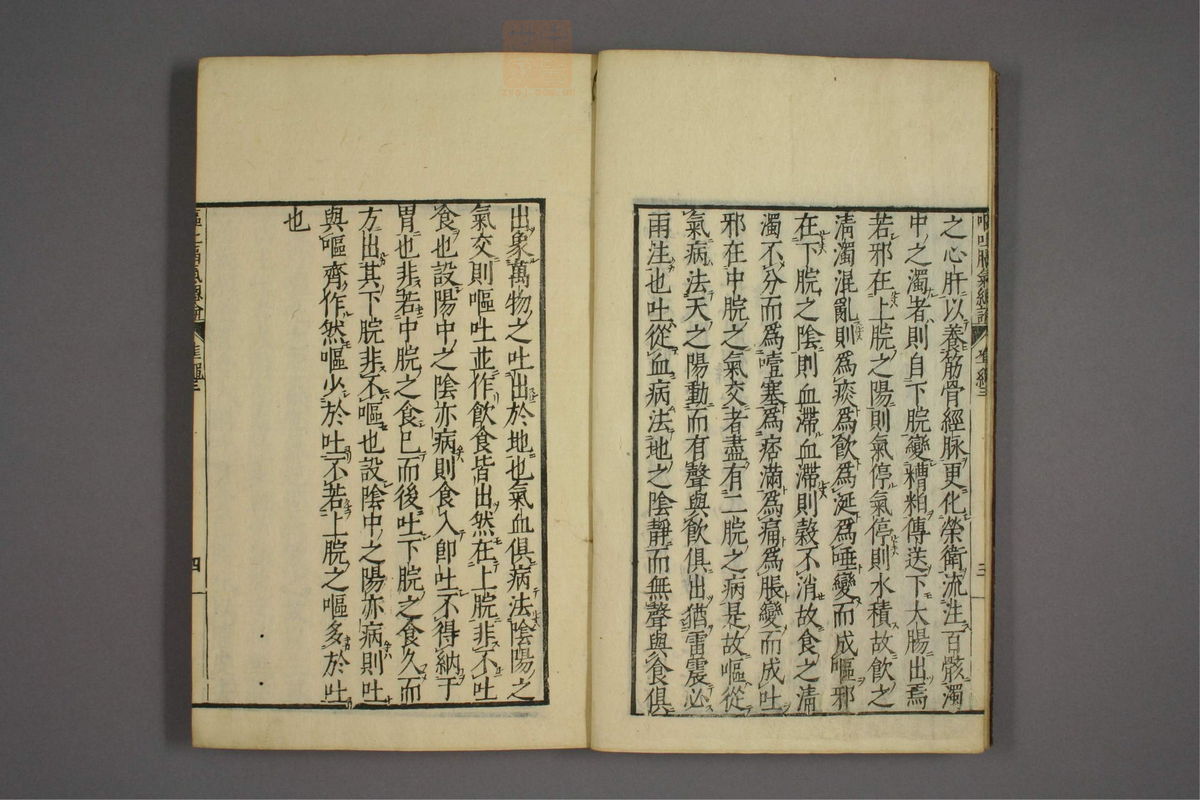 之心肝以養筋骨經脉更化榮衛流注百骸濁
中之濁者則自下脘變糟粕傳送下大腸出焉
若邪在上脘之陽則氣停氣停則水積故飲之
清濁混亂則爲痰爲飲爲涎爲唾變而成嘔邪
在下脘之陰則血滯血滯則穀不消故食之清
濁不分而爲噎塞爲痞滿爲痛爲脹變而成吐
邪在中脘之氣交者盡有二脘之病是故嘔從
氣病法天之陽動而有聲與飲俱出猶雷震必
雨注也吐從血病法地之陰靜而無聲與食俱
三
出象萬物之吐出於地也氣血俱病法陰陽之
氣交則嘔吐並作飲食皆出然在上脘非不吐
食也設陽中之陰亦病則食入即吐不得納于
胃也非若中脘之食已而後吐下脘之食久而
方出其下脘非不嘔也設陰中之陽亦病則吐
與嘔齊作然嘔少於吐不若上脘之嘔多於吐
也
四